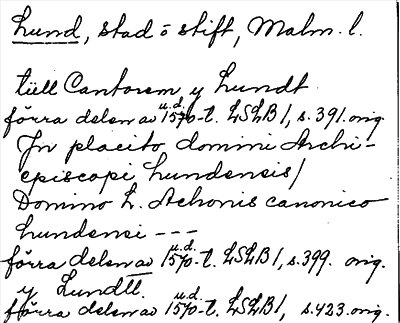 Lund, stad o stift, Malm. l.
till Cantorem y Lundt
förra delen av 1570-t. LSLB 1, s. 391. orig.
u.d.
In placito domini Archi-
episcopi Lundensis/
Domino L. Achonis canonico
Lundensi ---
förra delen av 1570-t. LSLB 1, s. 399. orig.
u.d.
y Lundtt.
förra delen av 1570-t. LSLB 1, s. 423. orig.
u.d.